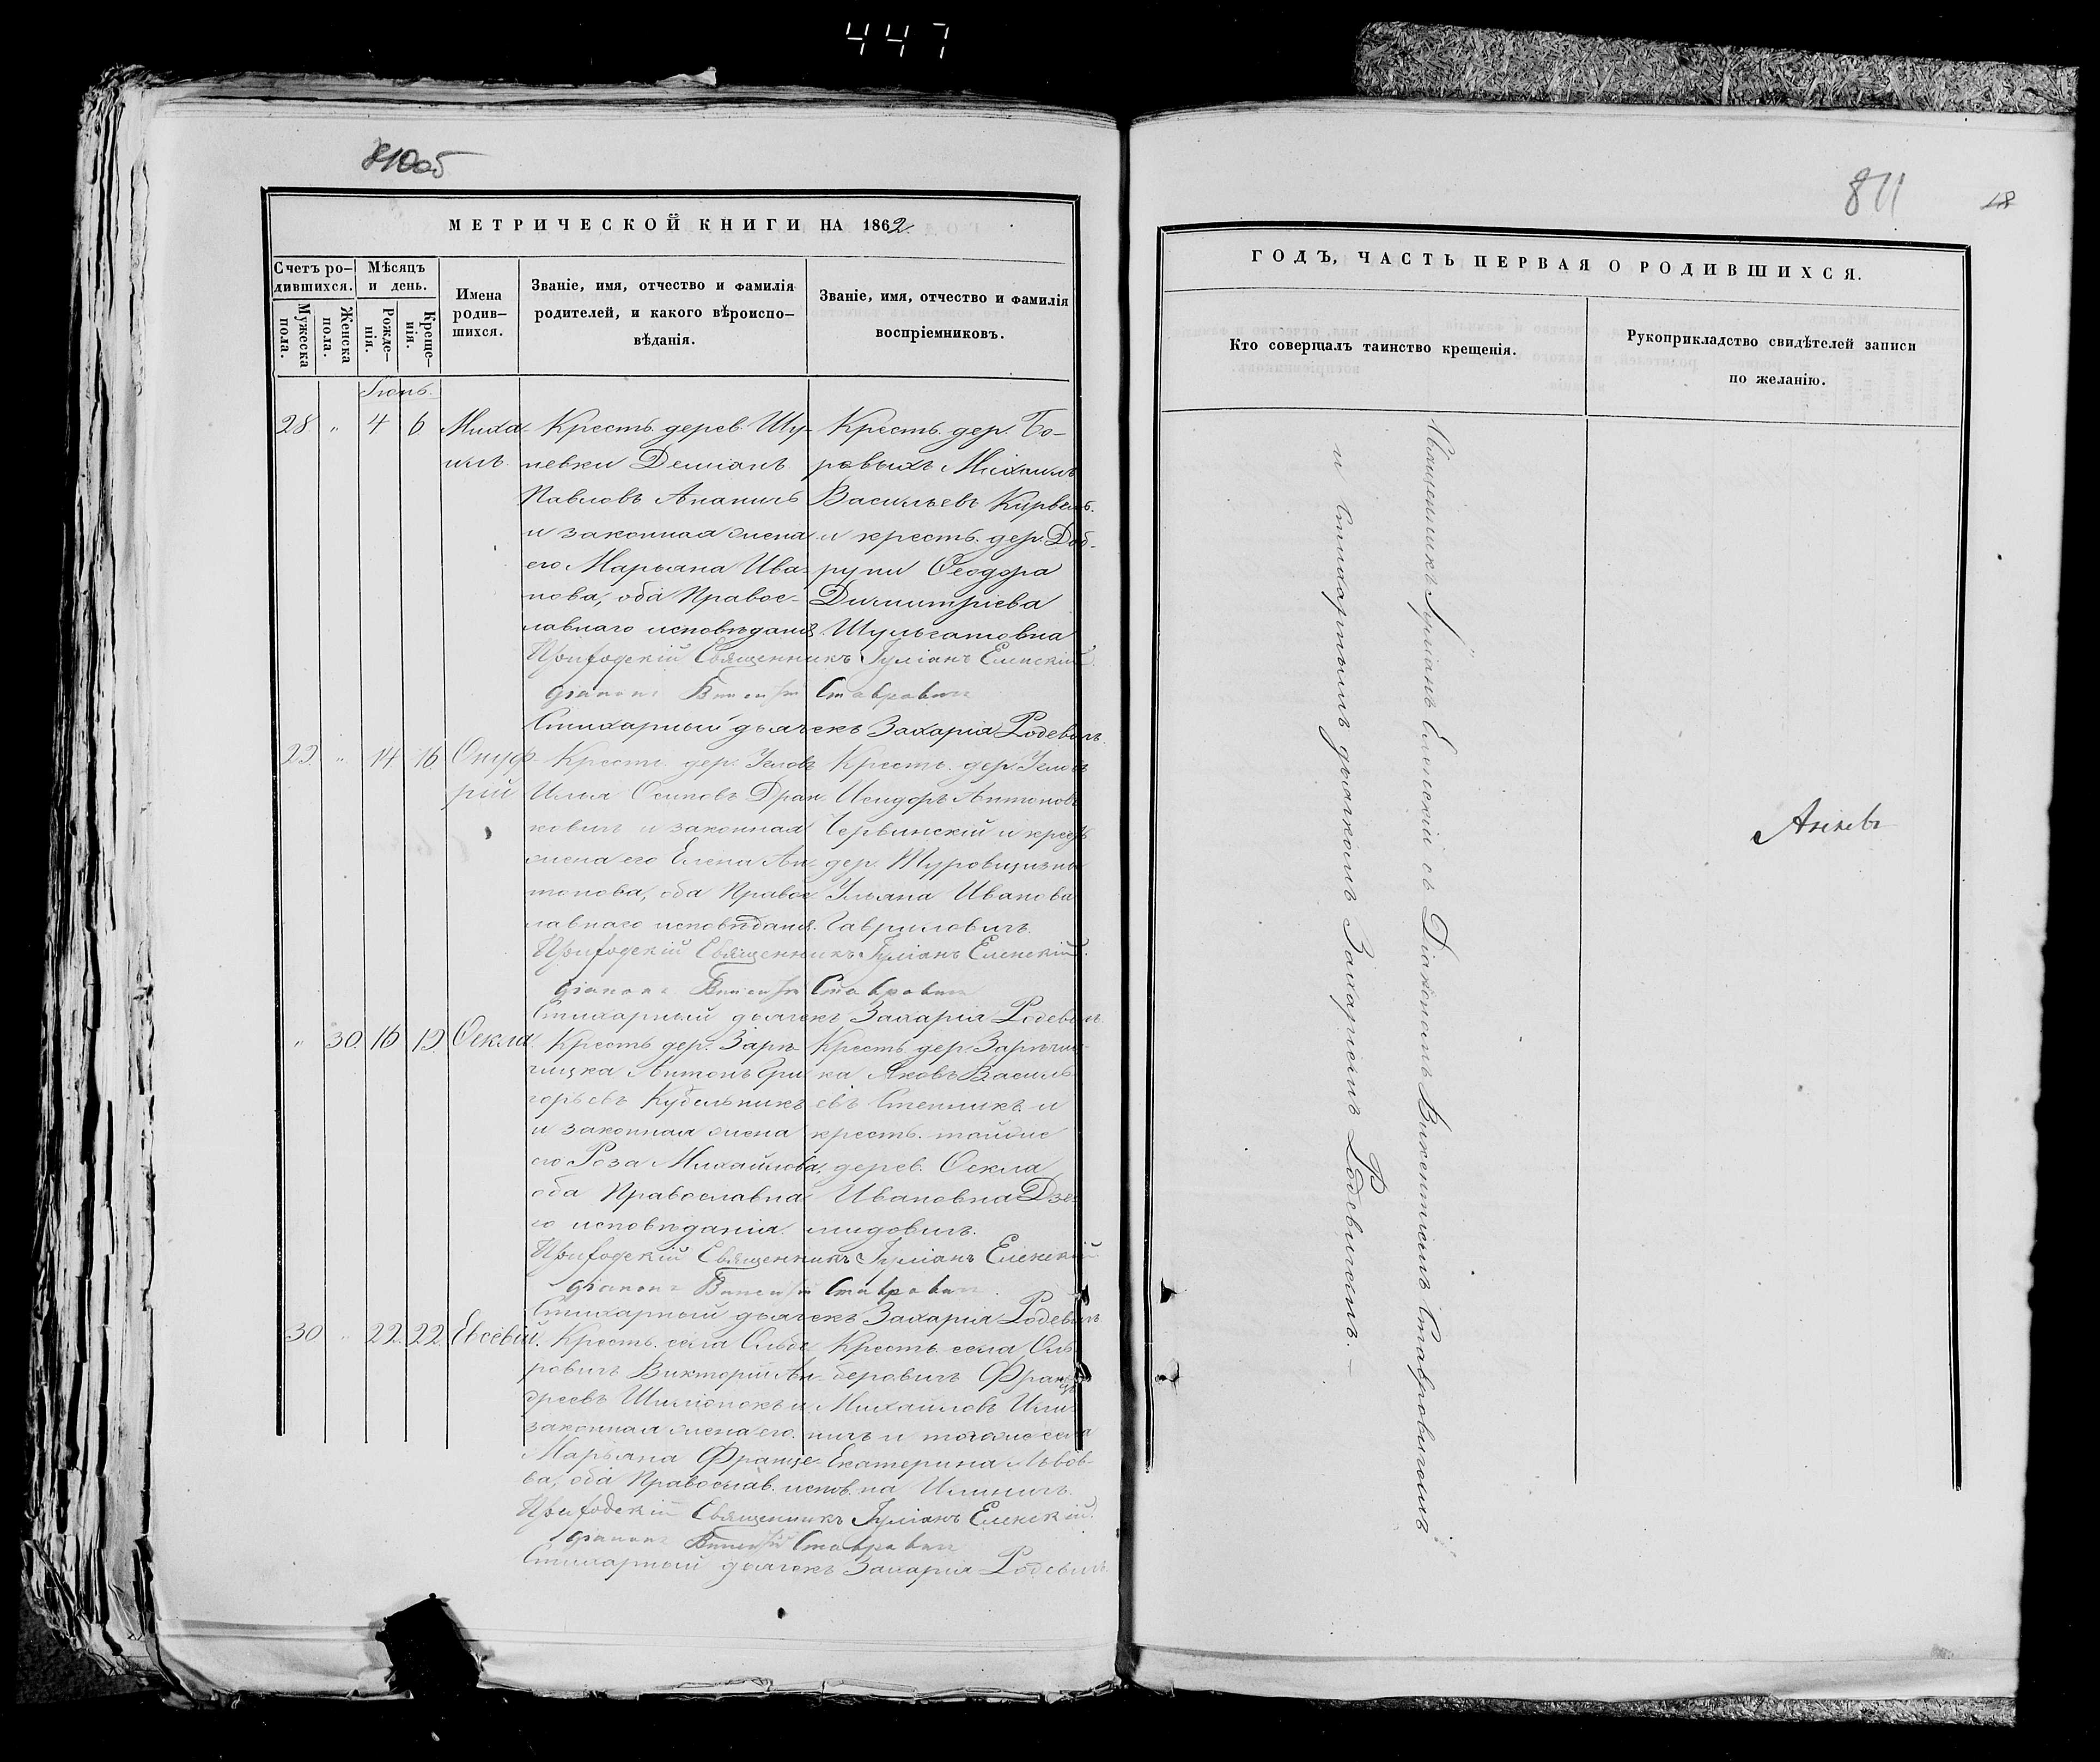 447
810об
МЕТРИЧЕСКОЙ КНИГИ НА 1862.
Счетъ ро-
дившихся.
Мѣсяцъ
и день.
Мужеска
пола.
Женска
пола.
Рожде-
нія.
Креще-
нія.
Имена
родив-
шихся.
Званіе, имя, отчество и фамилія
родителей, и какого вѣроиспо-
вѣданія.
Званіе, имя, отчество и фамилія
воспріемниковъ.
Іюнь.
28. " 4 6 Миха-
илъ.
Крестъ. дерев. Шу-
невки Деміанъ
Павловъ Ананичъ
и законная жена
его Марьяна Ива-
нова, оба Правос-
лавнаго исповѣданія
Крестъ. дер. Бо-
ровыхъ Михаилъ
Васильевъ Кирвель.
и крестъ. дер. Доб-
руни Ѳеодора
Димитріева
Шульгатовна
Приходскій Священникъ Іуліанъ Еленскій.
Діаконъ Викентій Ставровичъ
Стихарный дьячекъ Захарія Родевичъ.
29. " 14 16 Онуф-
рій
Крестъ. дер. Углов
Илья Осиповъ Дран
ковичъ и законная
жена его Елена Ан-
тонова, оба Правос
лавнаго исповѣданія.
Крестъ. дер. Углов
Исидоръ Антоновъ
Червинскій и крест
дер. Туровщизны
Ульяна Иванова
Гавриловичъ.
Приходскій Священникъ Іуліанъ Еленскій.
Діаконъ Викентій Ставровичъ
Стихарный дьячекъ Захарія Родевичъ.
" 30. 16 19. Ѳекла
Крестъ дер. Зарѣ-
чицка Антонъ Гри
горьевъ Кубельникъ
и законная жена
его Роза Михайлова,
оба Православна
го исповѣданія.
Крестъ. дер. Зарѣчиц-
ка Яковъ Василь
евъ Степникъ и
крестъ. тойже
дерев. Ѳекла
Ивановна Дзе-
мидовичъ.
Приходскій Священникъ Іуліанъ Еленскій.
Діаконъ Викентій Ставровичъ.
Стихарный дьячекъ Захарія Родевичъ.
30 " 22. 22. Евсевій.
Крестъ. села Ольбе
ровичъ Викторій Ан-
дреевъ Шиміонокъ и
законная жена его.
Марьяна Францо-
ва, оба Православ. испов.
Крестъ. села Оль
беровичъ Францъ
Михайловъ Или-
ничъ и тогоже села
Екатерина Львов-
на Илиничъ.
Приходскій Священникъ Іуліанъ Еленскій.
Діаконъ Викентій Ставровичъ
Стихарный дьячекъ Захарія Родевичъ.
811
18
ГОДЪ, ЧАСТЬ ПЕРВАЯ О РОДИВШИХСЯ.
Кто совершалъ таинство крещенія.
Рукоприкладство свидѣтелей записи
по желанію.
Священникъ Іуліанъ Еленскій съ Діакономъ Викентіемъ Ставровичомъ
и стихарнымъ дьячкомъ Захаріемъ Родевичемъ. —